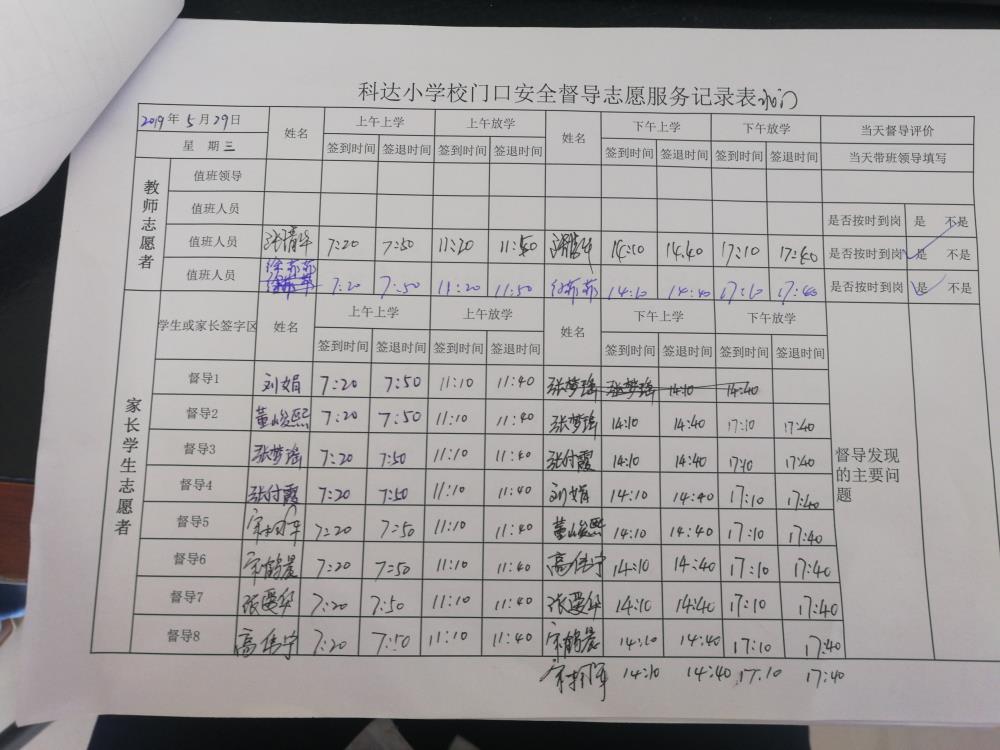 科达小学校门口安全督导志愿服务记录表 北门
2019年5月29日 姓名 上午上学 上午放学 姓名 下午上学 下午放学 当天督导评价
星期三 签到时间 签退时间 签到时间 签退时间 签到时间 签退时间 签到时间 签退时间 当天带班领导填写
教师志愿者
值班领导
值班人员 是否按时到岗 是 不是
值班人员 7:20 7:50 11:20 11:50 14:10 14:40 17:10 17:40 是否按时到岗 是 不是
值班人员 徐苏苏 7:20 7:50 11:20 11:50 14:10 14:40 17:10 17:40 是否按时到岗 是 不是
家长学生志愿者
学生或家长签字区 姓名 上午上学 上午放学 姓名 下午上学 下午放学
签到时间 签退时间 签到时间 签退时间 签到时间 签退时间 签到时间 签退时间
督导1 刘娟 7:20 7:50 11:10 11:40 张梦瑶 张梦瑶 14:10 14:40
督导2 董峻熙 7:20 7:50 11:10 11:40 张梦瑶 14:10 14:40 17:10 17:40
督导3 张梦瑶 7:20 7:50 11:10 11:40 张付霞 14:10 14:40 17:10 17:40
督导4 张付霞 7:20 7:50 11:10 11:40 刘娟 14:10 14:40 17:10 17:40
督导5 7:20 7:50 11:10 11:40 董峻熙 14:10 14:40 17:10 17:40
督导6 宋鹤晨 7:20 7:50 11:10 11:40 高伟宁 14:10 14:40 17:10 17:40
督导7 张爱华 7:20 7:50 11:10 11:40 张爱华 14:10 14:40 17:10 17:40
督导8 高伟宁 7:20 7:50 11:10 11:40 宋鹤晨 14:10 14:40 17:10 17:40
14:10 14:40 17:10 17:40
督导发现的主要问题